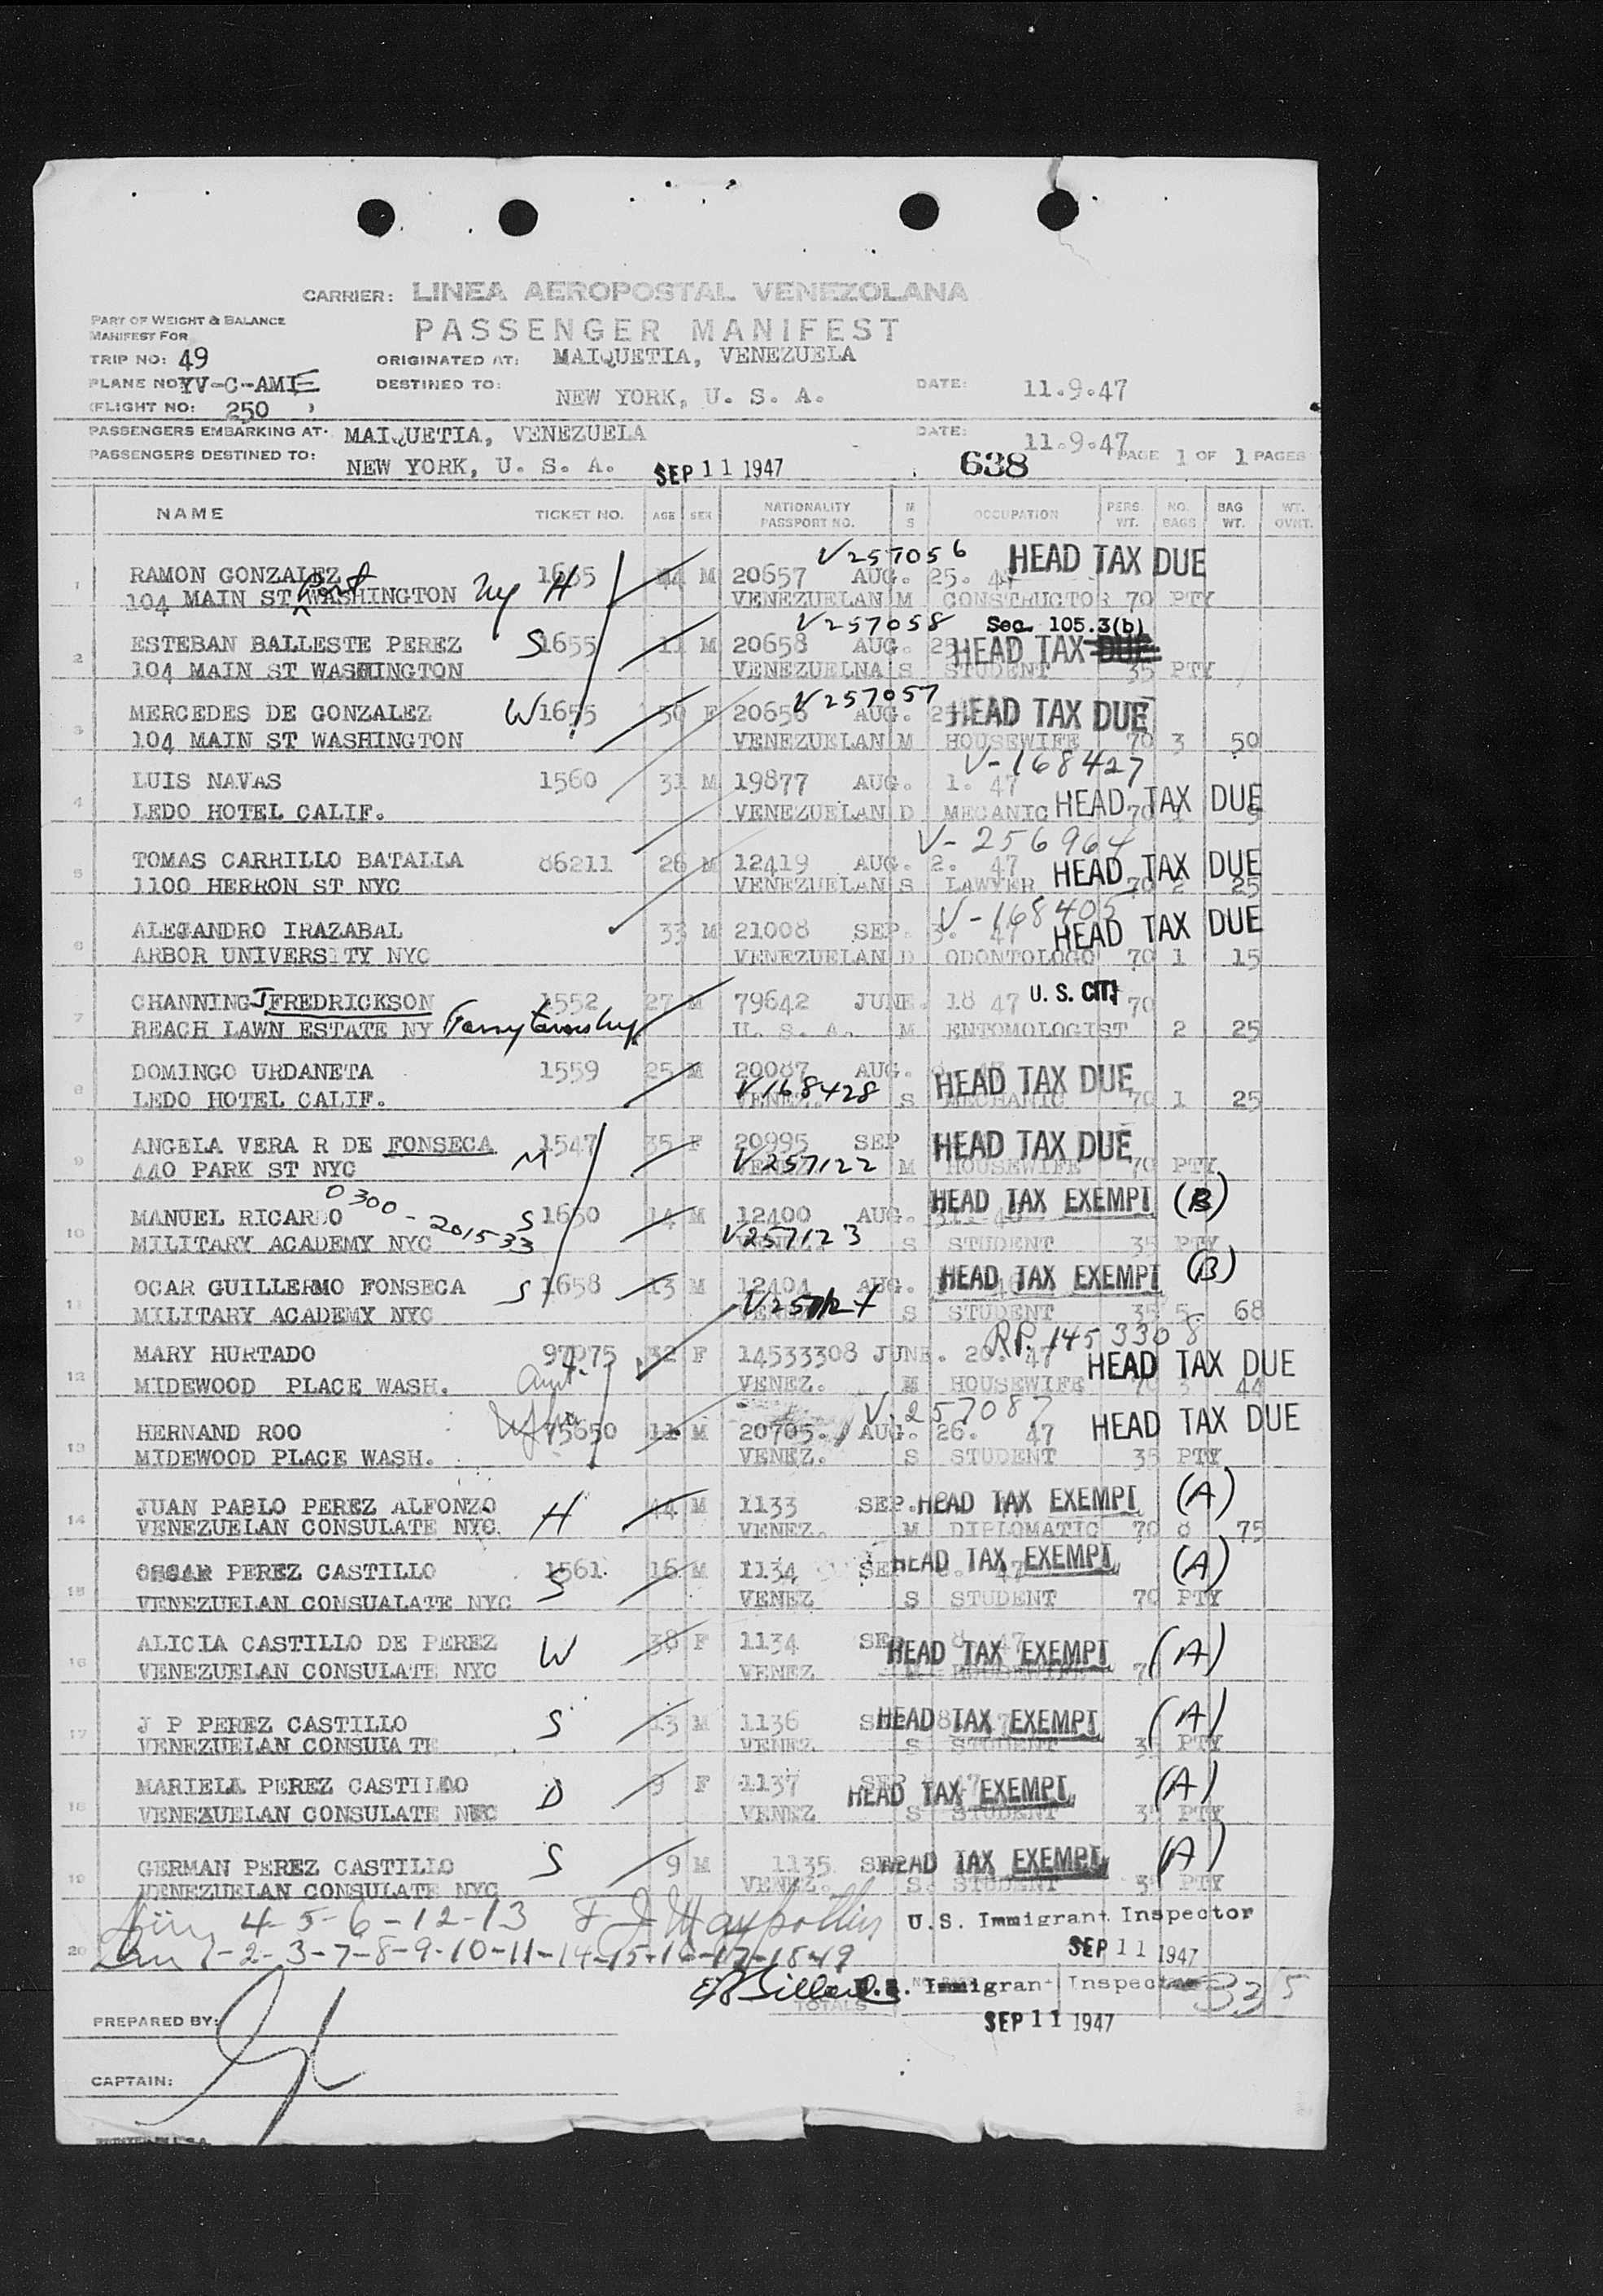 CARRIER: LINEA AEROPOSTAL VENEZOLANA
PART OF WEIGHT & BALANCE
MANIFEST FOR
PASSENGER MANIFEST
TRIP NO: 49 ORIGINATED AT: MAIQUETIA, VENEZUELA
PLANE NO: YV-C-AME DESTINED TO: NEW YORK, U. S. A. DATE: 11.9.47
(FLIGHT NO: 250 )
PASSENGERS EMBARKING AT: MAIQUETIA, VENEZUELA DATE: 11.9.47
PASSENGERS DESTINED TO: NEW YORK, U. S. A. SEP 11 1947 638 PAGE 1 OF 1 PAGES
NAME TICKET NO. AGE SEX NATIONALITY PASSPORT NO. M S OCCUPATION PERS. WT. NO. BAGS BAG WT. WT. OVNT.
V257056 HEAD TAX DUE
1 RAMON GONZALEZ H 44 M 20657 AUG. 25. 47
104 MAIN ST Port WASHINGTON Ny VENEZUELAN M CONSTRUCTOR 70 PTY
V257058 Sec. 105.3(b)
2 ESTEBAN BALLESTE PEREZ S 1655 11 M 20658 AUG. 25 HEAD TAX DUE
104 MAIN ST WASHINGTON VENEZUELNA S STUDENT 35 PTY
V257057
3 MERCEDES DE GONZALEZ W 1655 F 20656 AUG. HEAD TAX DUE
104 MAIN ST WASHINGTON VENEZUELAN M HOUSEWIFE 70 3 50
V-168427
4 LUIS NAVAS 1560 31 M 19877 AUG. 1. 47
LEDO HOTEL CALIF. VENEZUELAN D MECANIC HEAD TAX DUE 70
V-256964
5 TOMAS CARRILLO BATALLA 86211 26 M 12419 AUG. 2. 47 HEAD TAX DUE
1100 HERRON ST NYC VENEZUELAN S LAWYER 70 2 25
V-168405
6 ALEJANDRO IRAZABAL 33 M 21008 SEP. 3. 47 HEAD TAX DUE
ARBOR UNIVERSITY NYC VENEZUELAN D ODONTOLOGO 70 1 15
7 CHANNING J FREDRICKSON 1552 27 M 79642 JUNE. 18 47 U. S. CIT. 70
BEACH LAWN ESTATE NY U. S. A. M ENTOMOLOGIST 2 25
8 DOMINGO URDANETA 1559 25 M 20087 AUG. HEAD TAX DUE
LEDO HOTEL CALIF. V168428 S MECHANIC 70 1 25
9 ANGELA VERA R DE FONSECA 1547 35 F 20995 SEP HEAD TAX DUE
440 PARK ST NYC V257122 M HOUSEWIFE 70 PTY
0300-201533
10 MANUEL RICARDO S 1650 14 M 12400 AUG. HEAD TAX EXEMPT (B)
MILITARY ACADEMY NYC V257123 S STUDENT 35 PTY
11 OCAR GUILLERMO FONSECA S 1658 13 M 12404 AUG. HEAD TAX EXEMPT (B)
MILITARY ACADEMY NYC S STUDENT 35 5 68
RP. 1453308
12 MARY HURTADO 97075 32 F 14533308 JUNE. 20. 47 HEAD TAX DUE
MIDEWOOD PLACE WASH. aunt VENEZ. M HOUSEWIFE 70 3 44
V-257087
13 HERNAND ROO 75650 11 M 20705. AUG. 26. 47 HEAD TAX DUE
MIDEWOOD PLACE WASH. VENEZ. S STUDENT 35 PTY
14 JUAN PABLO PEREZ ALFONZO H 44 M 1133 SEP. HEAD TAX EXEMPT (A)
VENEZUELAN CONSULATE NYC. VENEZ. M DIPLOMATIC 70 8 75
15 OSCAR PEREZ CASTILLO 1561. S 16 M 1134 SEP HEAD TAX EXEMPT (A)
VENEZUELAN CONSUALATE NYC VENEZ S STUDENT 70 PTY
16 ALICIA CASTILLO DE PEREZ W 38 F 1134 SEP 8 47 HEAD TAX EXEMPT (A)
VENEZUELAN CONSULATE NYC VENEZ M HOUSEWIFE
17 J P PEREZ CASTILLO S 13 M 1136 SEP 8 HEAD TAX EXEMPT (A)
VENEZUELAN CONSULATE VENEZ. S STUDENT 35 PTY
18 MARIELA PEREZ CASTILLO D 9 F 1137 SEP 47 HEAD TAX EXEMPT (A)
VENEZUELAN CONSULATE NYC VENEZ S STUDENT 35 PTY
19 GERMAN PEREZ CASTILLO S 9 M 1135 SEP HEAD TAX EXEMPT (A)
VENEZUELAN CONSULATE NYC VENEZ. S. STUDENT 35 PTY
4-5-6-12-13 U.S. Immigrant Inspector
20 1-2-3-7-8-9-10-11-14-15-16-17-18-19 SEP 11 1947
U.S. Immigrant Inspector 335
TOTALS
PREPARED BY: SEP 11 1947
CAPTAIN: